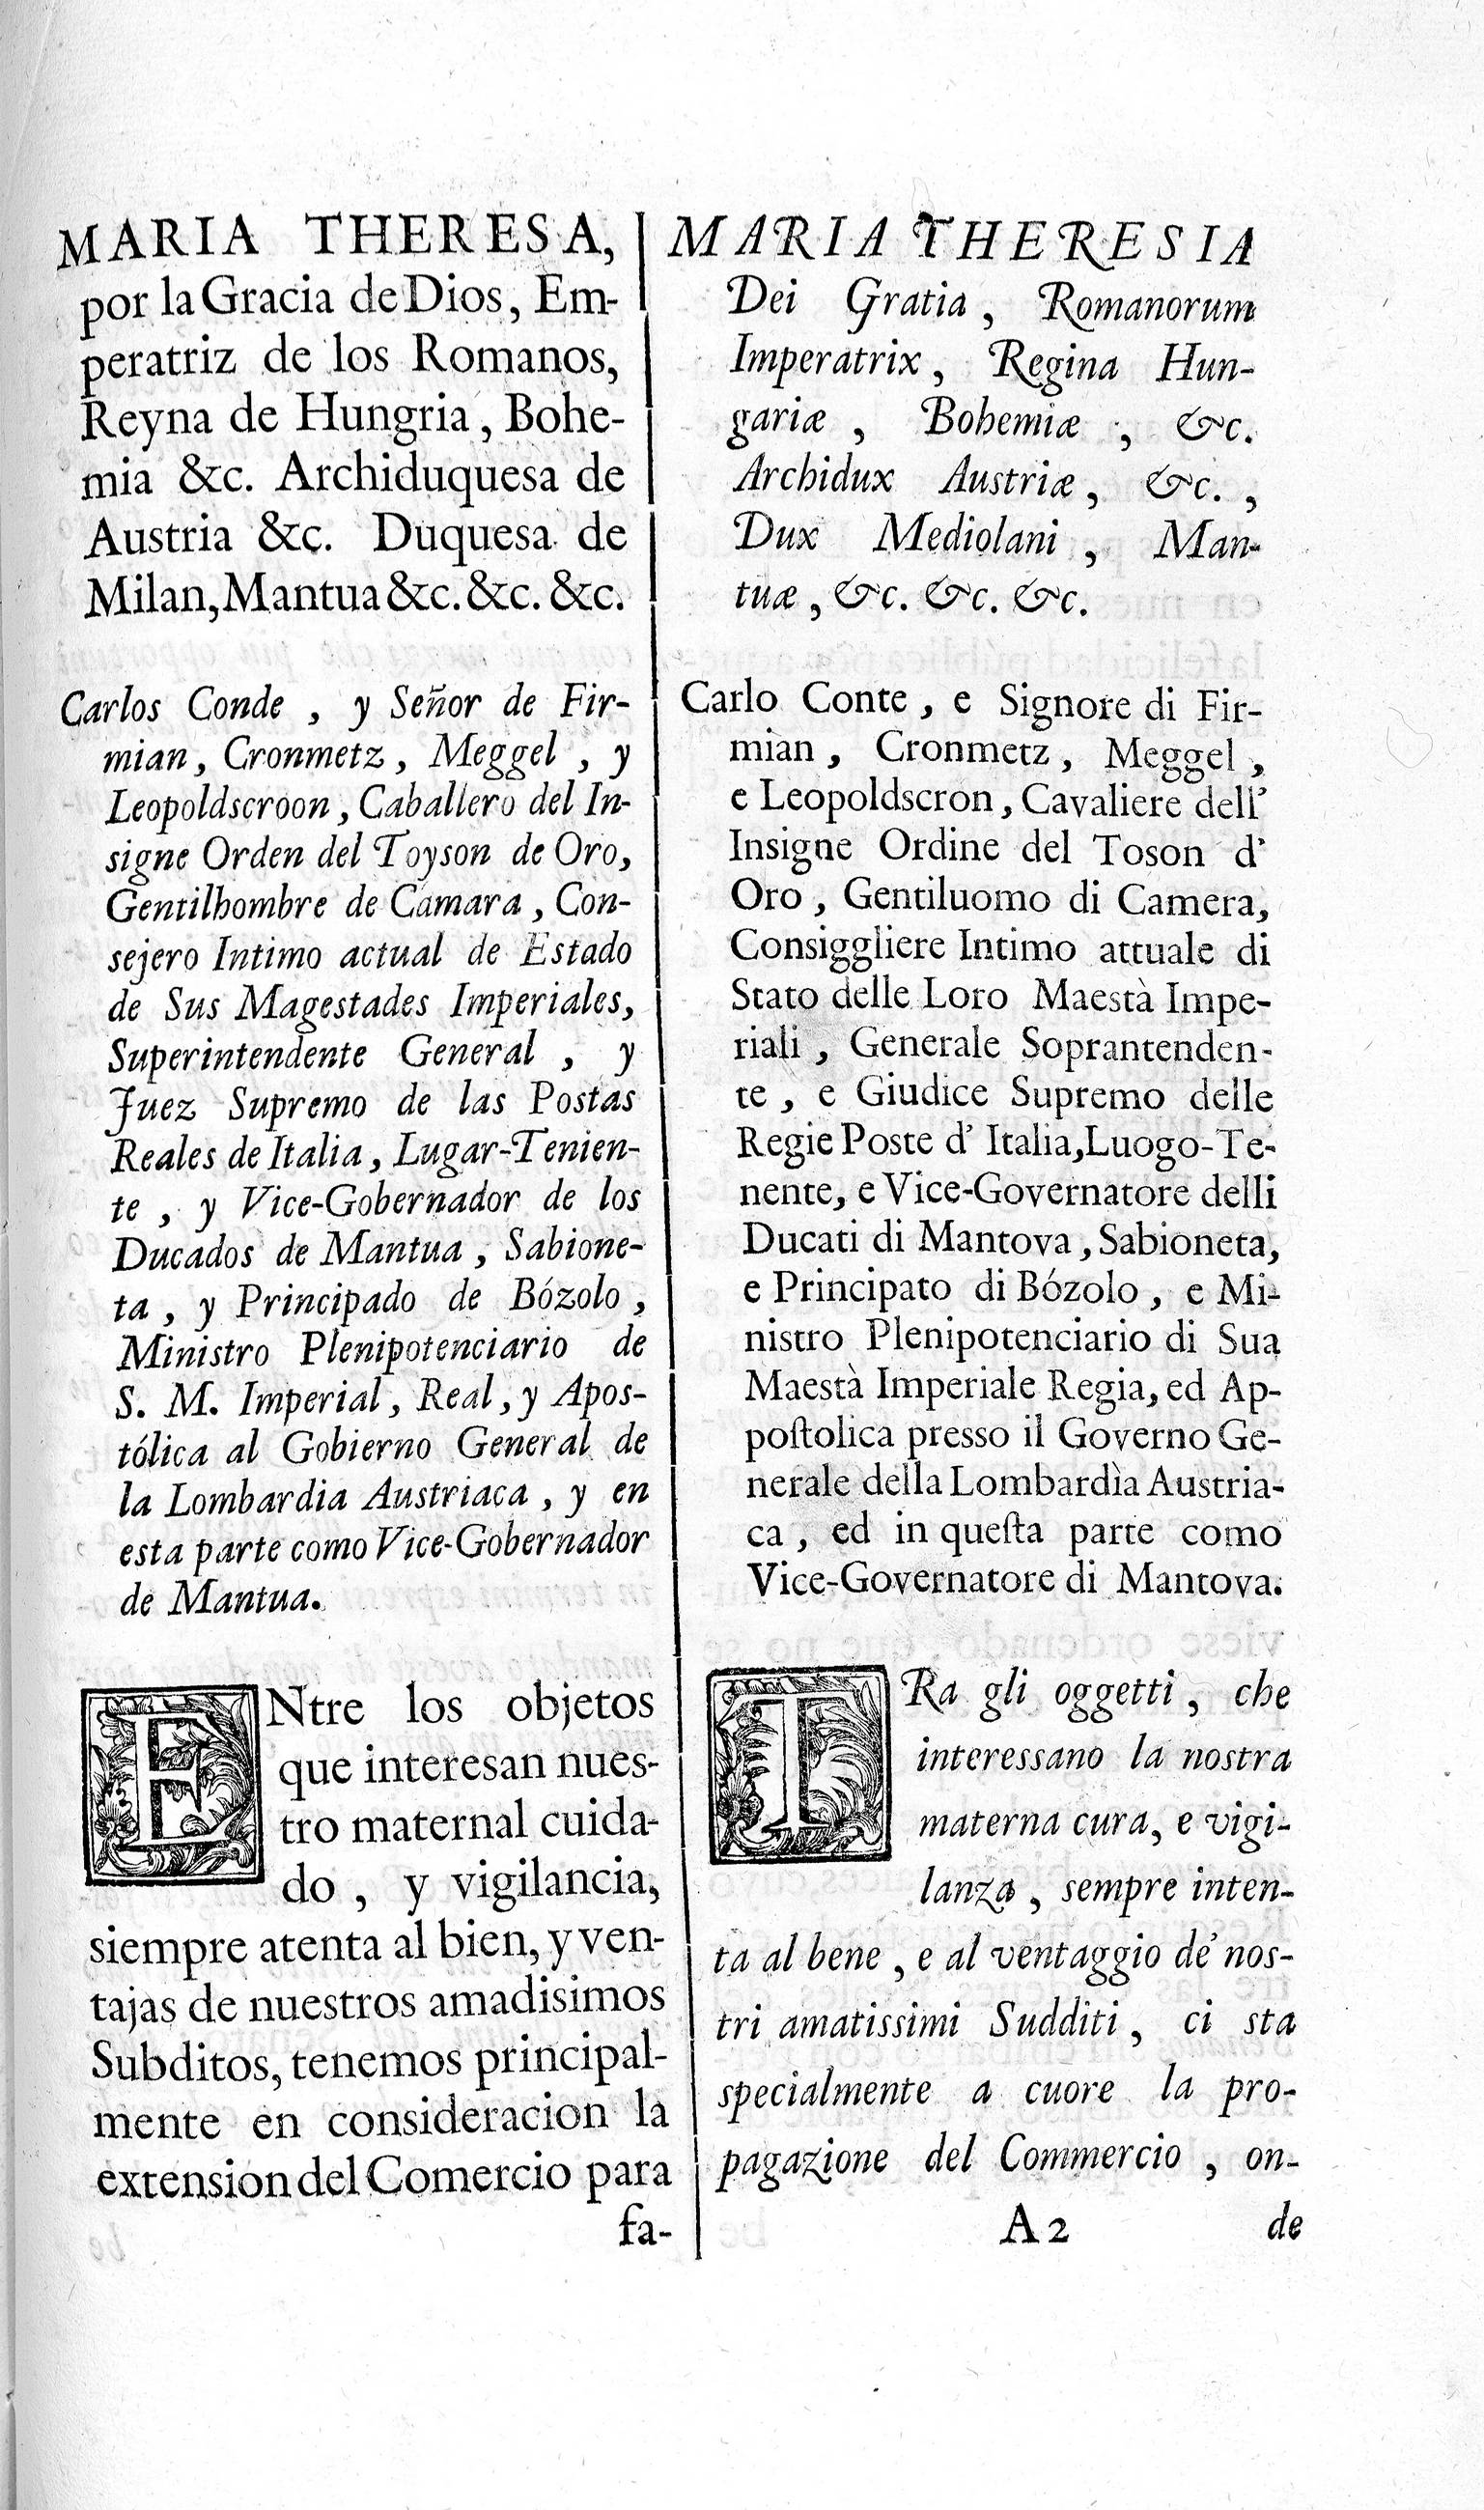 MARIA THERESA,
por la Gracia de Dios, Em-
peratriz de los Romanos,
Reyna de Hungria, Bohe-
mia &c. Archiduquesa de
Austria &c. Duquesa de
Milan, Mantua &c. &c. &c.
Carlos Conde, y Señor de Fir-
mian, Cronmetz, Meggel, y
Leopoldscroon, Caballero del In-
signe Orden del Toyson de Oro,
Gentilhombre de Camara, Con-
sejero Intimo actual de Estado
de Sus Magestades Imperiales,
Superintendente General, y
Juez Supremo de las Postas
Reales de Italia, Lugar-Tenien-
te, y Vice-Gobernador de los
Ducados de Mantua, Sabione-
ta, y Principado de Bózolo,
Ministro Plenipotenciario de
S. M. Imperial, Real, y Apos-
tólica al Gobierno General de
la Lombardia Austriaca, y en
esta parte como Vice-Gobernador
de Mantua.
ENtre los objetos
que interesan nues-
tro maternal cuida-
do, y vigilancia,
siempre atenta al bien, y ven-
tajas de nuestros amadisimos
Subditos, tenemos principal-
mente en consideracion la
extension del Comercio para
fa-
MARIA THERESIA
Dei Gratia, Romanorum
Imperatrix, Regina Hun-
gariæ, Bohemiæ, &c.
Archidux Austriæ, &c.,
Dux Mediolani, Man-
tuæ, &c. &c. &c.
Carlo Conte, e Signore di Fir-
mian, Cronmetz, Meggel,
e Leopoldscron, Cavaliere dell'
Insigne Ordine del Toson d'
Oro, Gentiluomo di Camera,
Consiggliere Intimo attuale di
Stato delle Loro Maestà Impe-
riali, Generale Soprantenden-
te, e Giudice Supremo delle
Regie Poste d' Italia, Luogo-Te-
nente, e Vice-Governatore delli
Ducati di Mantova, Sabioneta,
e Principato di Bózolo, e Mi-
nistro Plenipotenciario di Sua
Maestà Imperiale Regia, ed Ap-
poſtolica presso il Governo Ge-
nerale della Lombardìa Austria-
ca, ed in queſta parte como
Vice-Governatore di Mantova.
TRa gli oggetti, che
interessano la nostra
materna cura, e vigi-
lanza, sempre inten-
ta al bene, e al ventaggio de' nos-
tri amatissimi Sudditi, ci sta
specialmente a cuore la pro-
pagazione del Commercio, on-
A 2 de